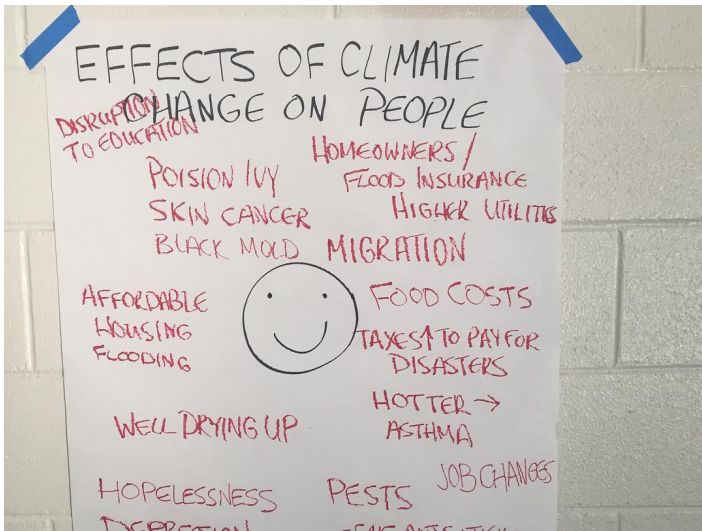 EFFECTS OF CLIMATE
CHANGE ON PEOPLE
DISRUPTION
TO EDUCATION
HOMEOWNERS/
FLOOD INSURANCE
HIGHER UTILITIES
POISION IVY
SKIN CANCER
BLACK MOLD
MIGRATION
AFFORDABLE
HOUSING
FLOODING
FOOD COSTS
TAXES↑ TO PAY FOR
DISASTERS
HOTTER →
ASTHMA
WELL DRYING UP
JOB CHANGES
HOPELESSNESS
PESTS